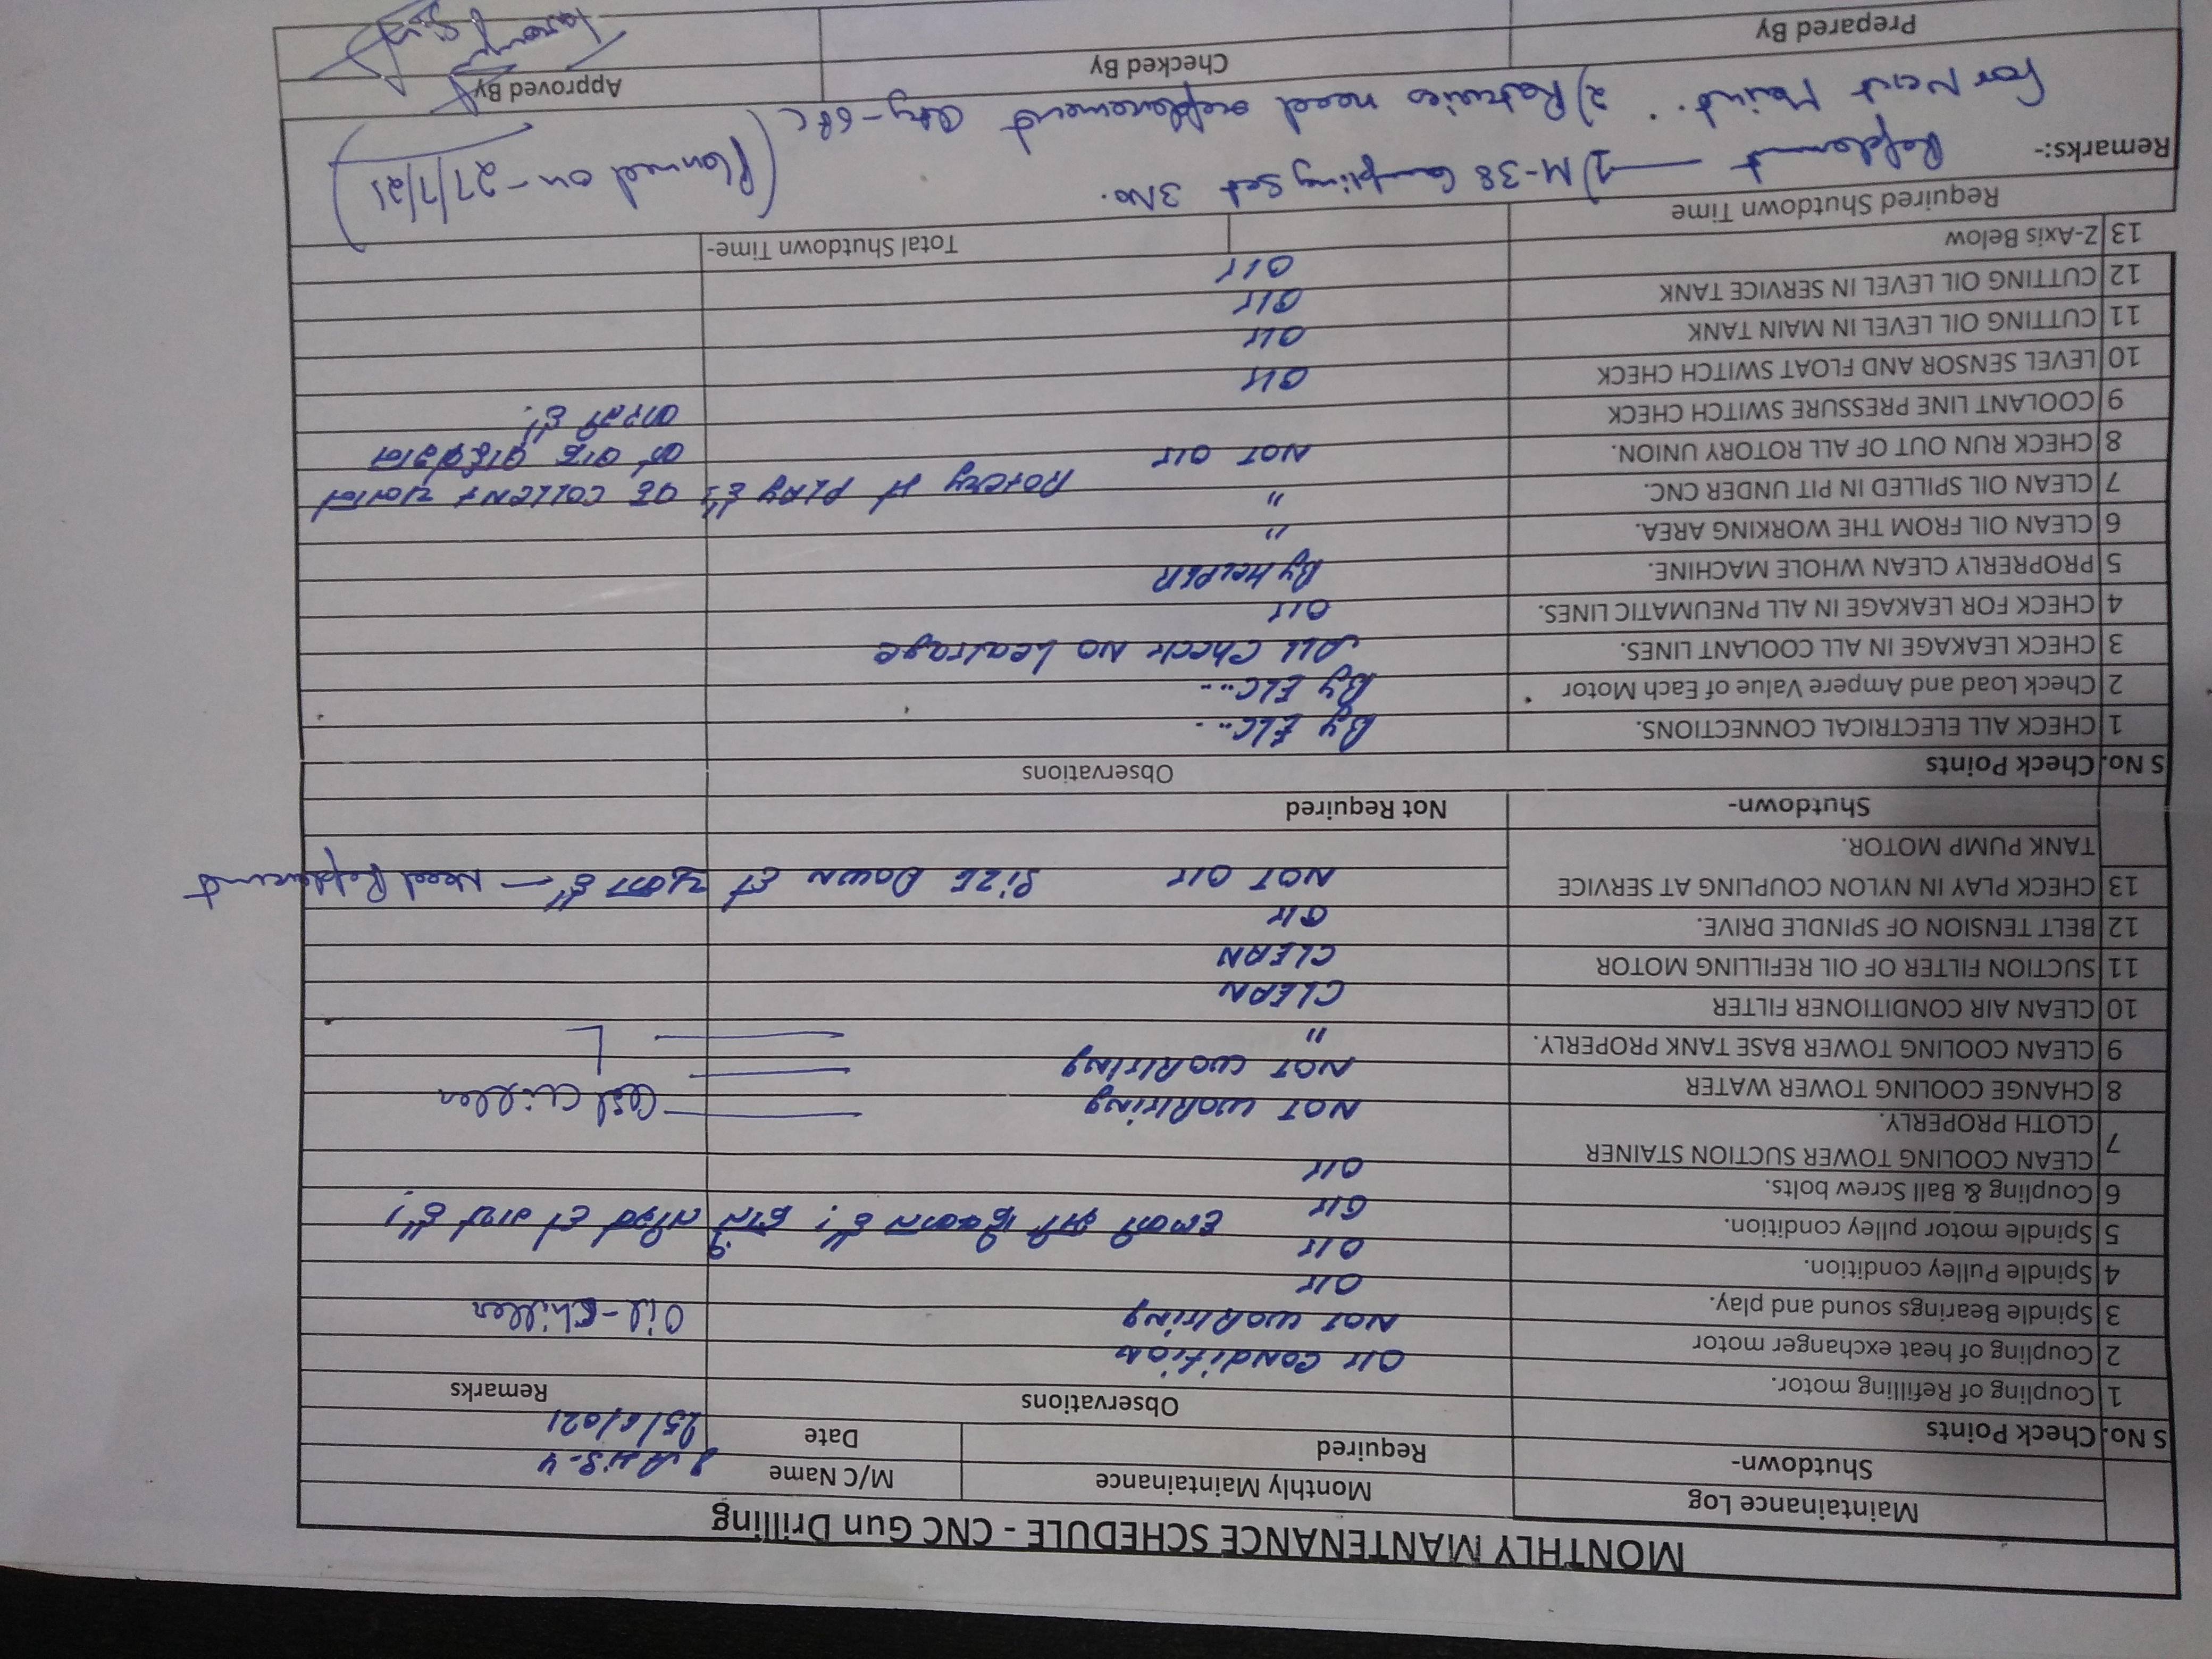 MONTHLY MANTENANCE SCHEDULE - CNC Gun Drilling
Maintainance Log Monthly Maintainance M/C Name
Shutdown- Required Date 25/6/021
S No. Check Points Observations Remarks
1 Coupling of Refilling motor. OK CONDITION
2 Coupling of heat exchanger motor NOT WORKING Oil-Chiller
3 Spindle Bearings sound and play. OK
4 Spindle Pulley condition. OK
5 Spindle motor pulley condition. OK
6 Coupling & Ball Screw bolts. OK
7 CLEAN COOLING TOWER SUCTION STAINER
CLOTH PROPERLY. NOT WORKING Chiller
8 CHANGE COOLING TOWER WATER NOT WORKING
9 CLEAN COOLING TOWER BASE TANK PROPERLY. "
10 CLEAN AIR CONDITIONER FILTER CLEAN
11 SUCTION FILTER OF OIL REFILLING MOTOR CLEAN
12 BELT TENSION OF SPINDLE DRIVE. OK
13 CHECK PLAY IN NYLON COUPLING AT SERVICE NOT OK SIZE DOWN - Need Replacement
TANK PUMP MOTOR.
Shutdown- Not Required
S No. Check Points Observations
1 CHECK ALL ELECTRICAL CONNECTIONS. By ELC...
2 Check Load and Ampere Value of Each Motor By ELC...
3 CHECK LEAKAGE IN ALL COOLANT LINES. ALL Check NO Leakage
4 CHECK FOR LEAKAGE IN ALL PNEUMATIC LINES. OK
5 PROPRERLY CLEAN WHOLE MACHINE. By HELPER
6 CLEAN OIL FROM THE WORKING AREA. "
7 CLEAN OIL SPILLED IN PIT UNDER CNC. "
8 CHECK RUN OUT OF ALL ROTORY UNION. NOT OK PLAY
9 COOLANT LINE PRESSURE SWITCH CHECK
10 LEVEL SENSOR AND FLOAT SWITCH CHECK OK
11 CUTTING OIL LEVEL IN MAIN TANK OK
12 CUTTING OIL LEVEL IN SERVICE TANK OK
13 Z-Axis Below OK
Required Shutdown Time Total Shutdown Time-
Remarks:- 1) M-38 Coupling Set 3No. (Planned on - 27/7/21)
For Next Maint. 2) need replacement Qty-
Prepared By Checked By Approved By